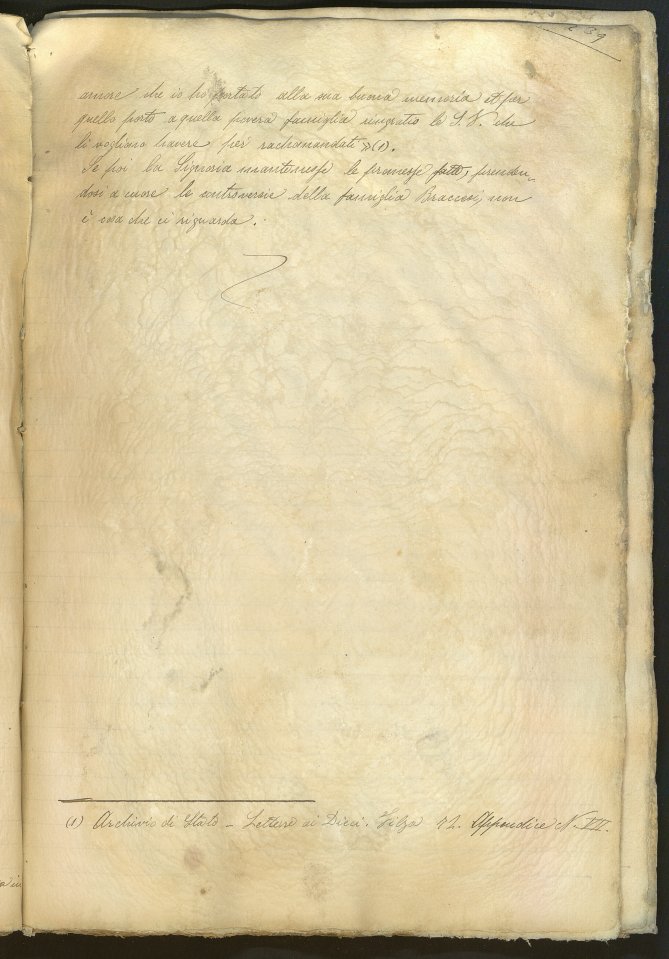 amore che io ho portato alla sua buona memoria et per
quello porto a quella povera famiglia ringratio le S. V. che
li vogliano havere per rachomandati »(1).
Se poi la Signoria mantenesse le promesse fatte, prenden-
dosi a cuore le controversie della famiglia Braccesi, non
è cosa che ci riguarda.
(1) Archivio di Stato - Lettere ai Dieci. Filza 42. Appendice N. VII.